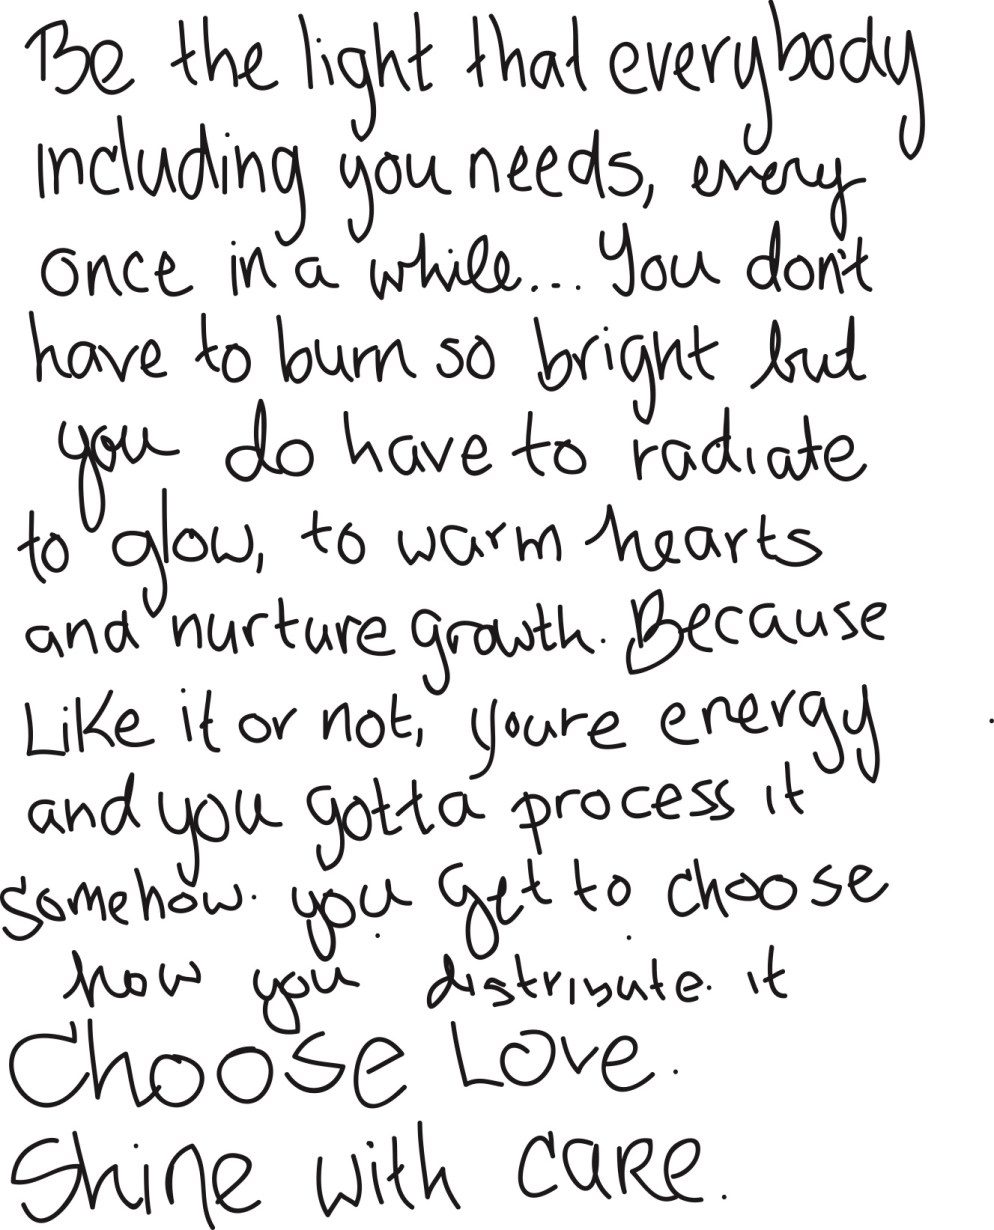 Be the light that everybody
including you needs, every
once in a while... You don't
have to burn so bright but
you do have to radiate
to glow, to warm hearts
and nurture growth. Because
Like it or not, youre energy
and you gotta process it
somehow. you get to choose
how you distribute. it
Choose Love.
Shine with care.